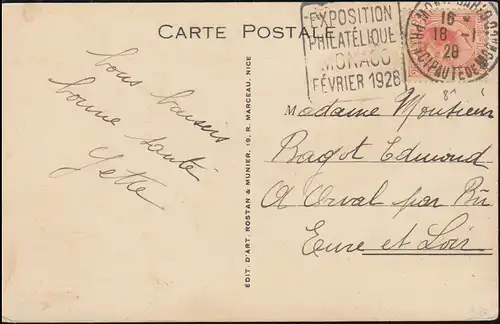 CARTE POSTALE
EXPOSITION
PHILATÉLIQUE
MONACO
FÉVRIER 1928
16
18 -1
28
PRINCIPAUTÉ DE MONACO
Bons baisers
bonne santé
Yette
ÉDIT. D'ART. ROSTAN & MUNIER, 19, R. MARCEAU, NICE
Madame Monsieur
Bagot Edmond
A Orval par Bû
Eure et Loir